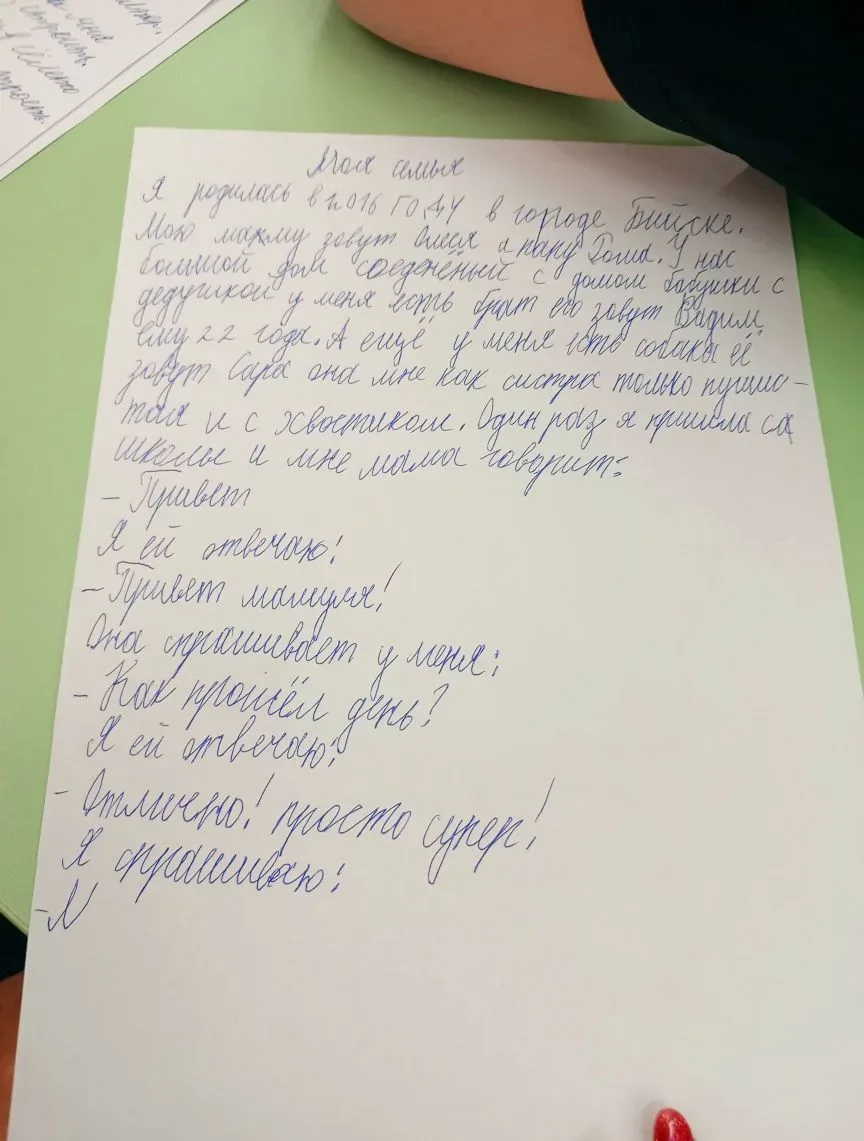 мня
строить.
Моя семья
Я родилась в 2016 ГОДУ в городе Бийске.
Мою маму зовут Олеся а папу Рома. У нас
большой дом соеденёный с домом бабушки с
дедушкой у меня есть брат его зовут Вадим,
ему 22 года. А ещё у меня есть собака её
зовут Сара она мне как систра только пушис-
тая и с хвостиком. Один раз я пришла са
школы и мне мама говорит:
- Привет
Я ей отвечаю:
- Привет мамуля!
Она спрашивает у меня:
- Как прошёл день?
Я ей отвечаю:
- Отлично! просто супер!
Я спрашиваю: